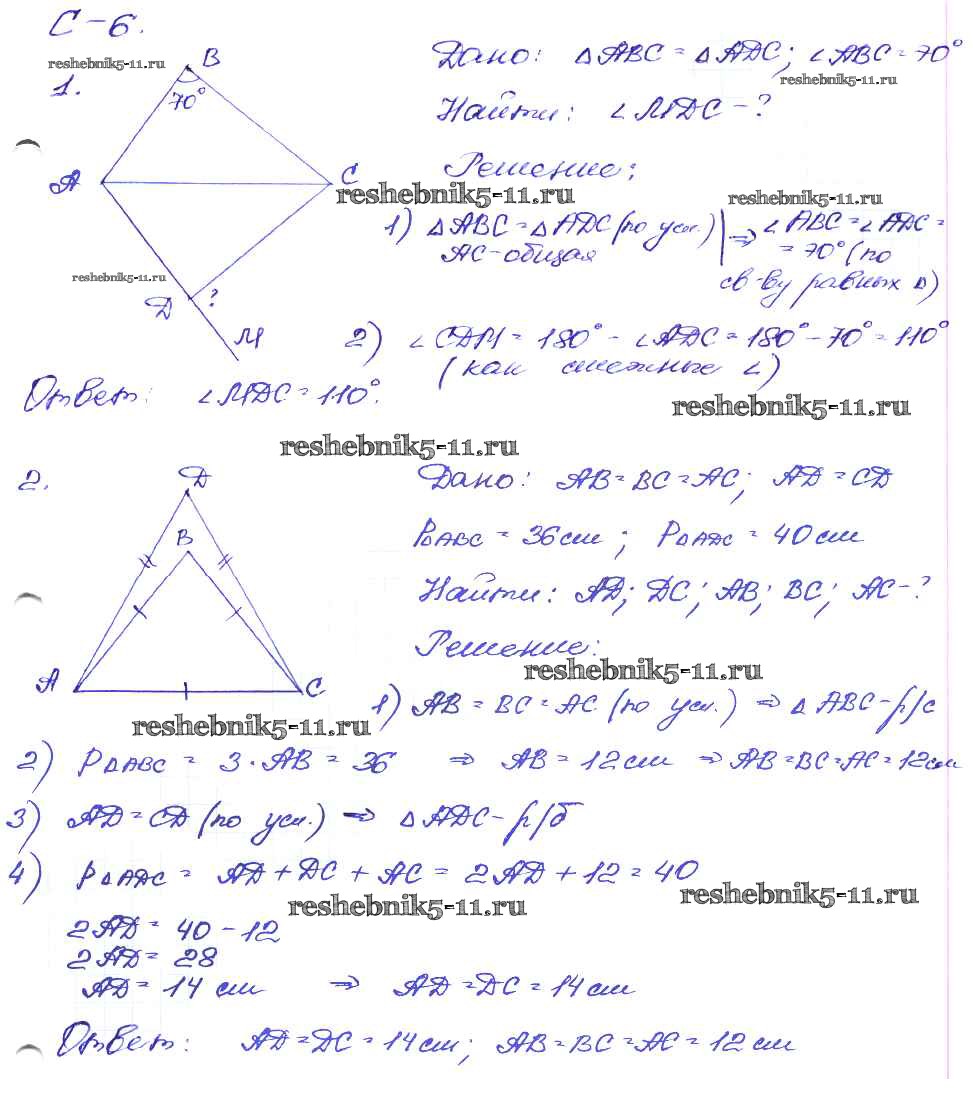 С-6.
reshebnik5-11.ru
1.
B
70°
A
C
Д
?
М
reshebnik5-11.ru
Дано: △ABC = △AДC; ∠ABC = 70°
reshebnik5-11.ru
Найти: ∠МДC - ?
Решение:
reshebnik5-11.ru
reshebnik5-11.ru
1) △ABC = △AДC (по усл.) | ⇒ ∠ABC = ∠AДC =
AC - общая
= 70° (по
св-ву равных △)
2) ∠CДМ = 180° - ∠AДC = 180° - 70° = 110°
(как смежные ∠)
Ответ: ∠МДC = 110°.
reshebnik5-11.ru
reshebnik5-11.ru
2.
Д
B
A
C
Дано: AB = BC = AC; AД = CД
P△ABC = 36 см; P△AДC = 40 см
Найти: AД; ДC; AB; BC; AC - ?
Решение:
reshebnik5-11.ru
reshebnik5-11.ru
1) AB = BC = AC (по усл.) ⇒ △ABC - р/с
2) P△ABC = 3 · AB = 36 ⇒ AB = 12 см ⇒ AB = BC = AC = 12 см
3) AД = CД (по усл.) ⇒ △AДC - р/б
4) P△AДC = AД + ДC + AC = 2AД + 12 = 40
reshebnik5-11.ru
reshebnik5-11.ru
2AД = 40 - 12
2AД = 28
AД = 14 см ⇒ AД = ДC = 14 см
Ответ: AД = ДC = 14 см; AB = BC = AC = 12 см